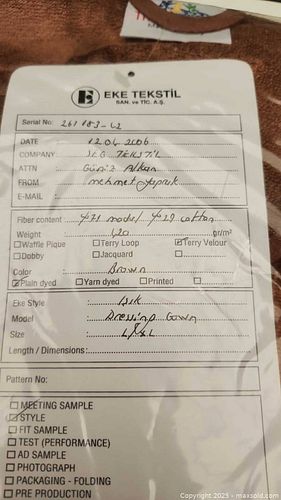 EKE TEKSTİL
SAN. ve TİC. A.Ş.
Serial No:
DATE : 12.04.2006
COMPANY:
ATTN :
FROM : mehmet
E-MAIL :
Fiber content : %71 modal %29 cotton
Weight : gr/m²
☐Waffle Pique ☐Terry Loop ☑Terry Velour
☐Dobby ☐Jacquard ☐
Color : Brown
☑Plain dyed ☐Yarn dyed ☐Printed ☐
Eke Style :
Model : Dressing Gown
Size : L/XL
Length / Dimensions:
Pattern No:
☐ MEETING SAMPLE
☑ STYLE
☐ FIT SAMPLE
☐ TEST (PERFORMANCE)
☐ AD SAMPLE
☐ PHOTOGRAPH
☐ PACKAGING - FOLDING
☐ PRE PRODUCTION
Copyright 2023 - maxsold.com